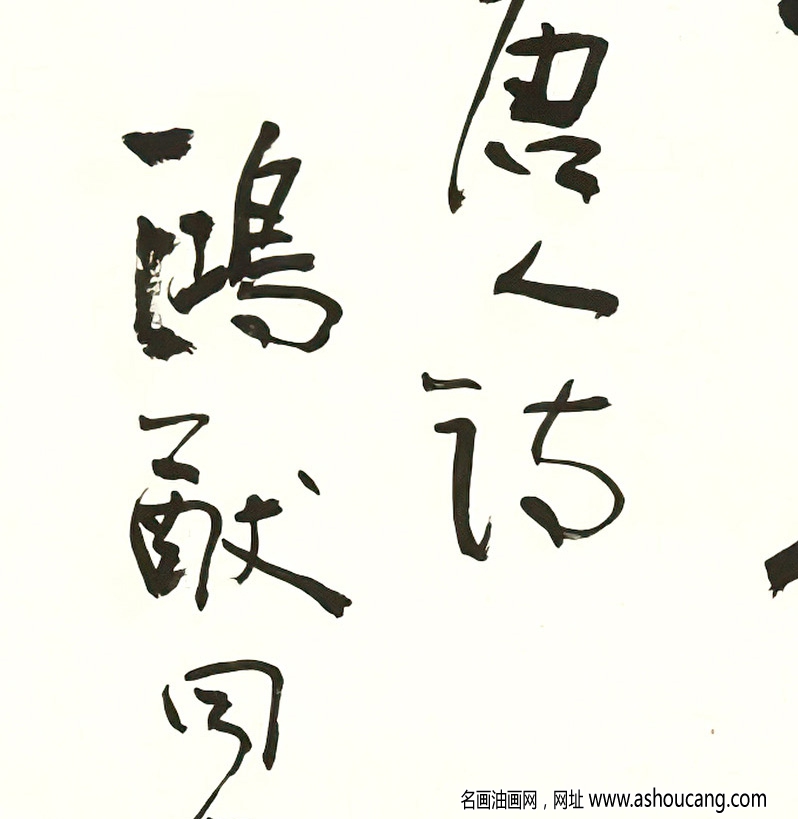 唐人诗
鸿猷同
名画油画网，网址 www.ashoucang.com